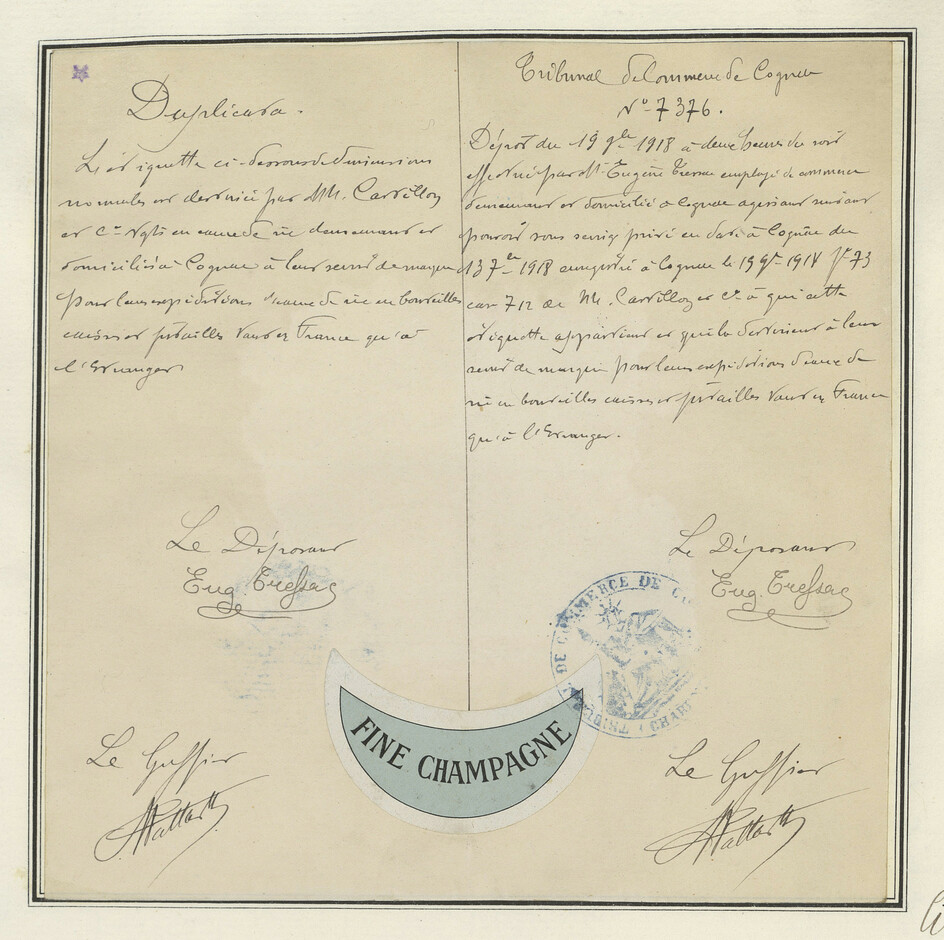 Duplicata.
L'étiquette ci-dessous de dimensions
normales est destinée par MM. Carrillon
et Cie Ngts en eau de vie demeurant et
domiciliés à Cognac à leur servir de marque
pour leurs expéditions d'eau de vie en bouteilles
caisses et futailles tant en France qu'à
l'Etranger
Le Déposant
Eug. Tressac
Le Greffier
Tribunal de Commerce de Cognac
No 7376.
Dépôt du 19 9bre 1918 à deux heures du soir
effectué par Mr Eugène Tressac employé de commerce
demeurant et domicilié à Cognac agissant suivant
pouvoir sous seing privé en date à Cognac du
13 7bre 1918 enregistré à Cognac le 19 9bre 1918 fo 73
case 712 de MM. Carrillon et Cie à qui cette
étiquette appartient et qui la destinent à leur
servir de marque pour leurs expéditions d'eau de
vie en bouteilles caisses et futailles tant en France
qu'à l'Etranger.
Le Déposant
Eug. Tressac
DE COMMERCE DE
Le Greffier
FINE CHAMPAGNE